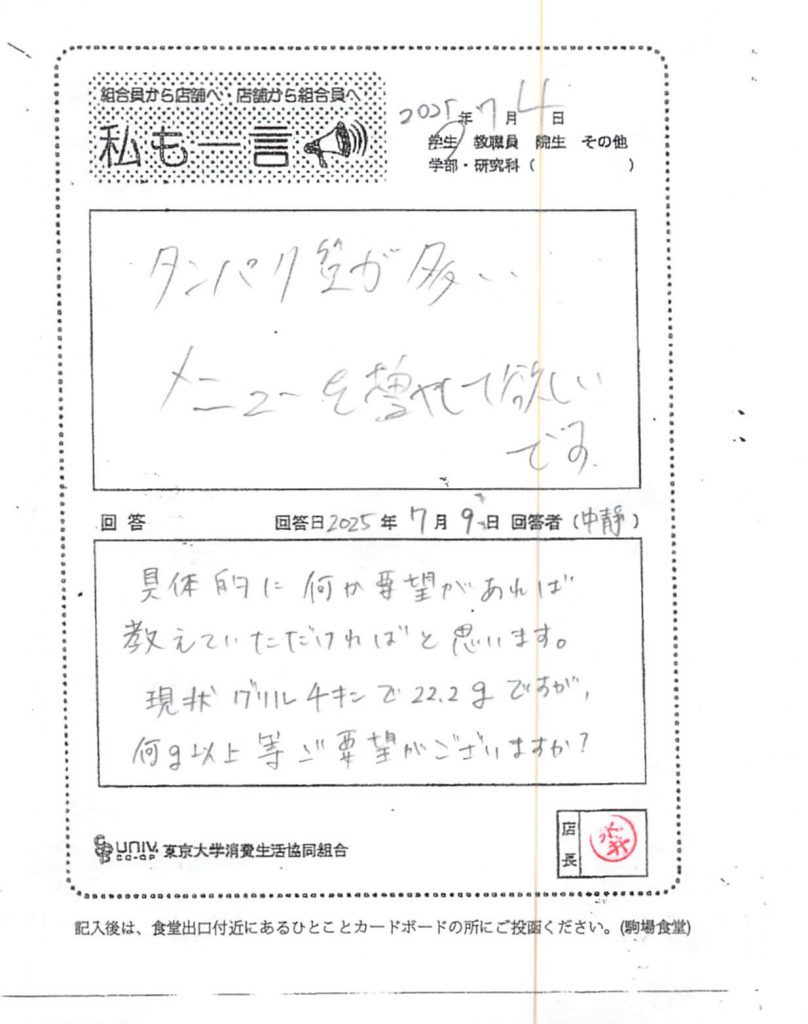 組合員から店舗へ・店舗から組合員へ
私も一言
2025年7月4日
学生 教職員 院生 その他
学部・研究科( )
タンパク質が多い
メニューを増やして欲しい
です。
回答 回答日2025年7月9日 回答者(中静)
具体的に何か要望があれば
教えていただければと思います。
現状グリルチキンで22.2gですが、
何g以上等ご要望がございますか?
UNIV. CO-OP 東京大学消費生活協同組合
店長
記入後は、食堂出口付近にあるひとことカードボードの所にご投函ください。(駒場食堂)